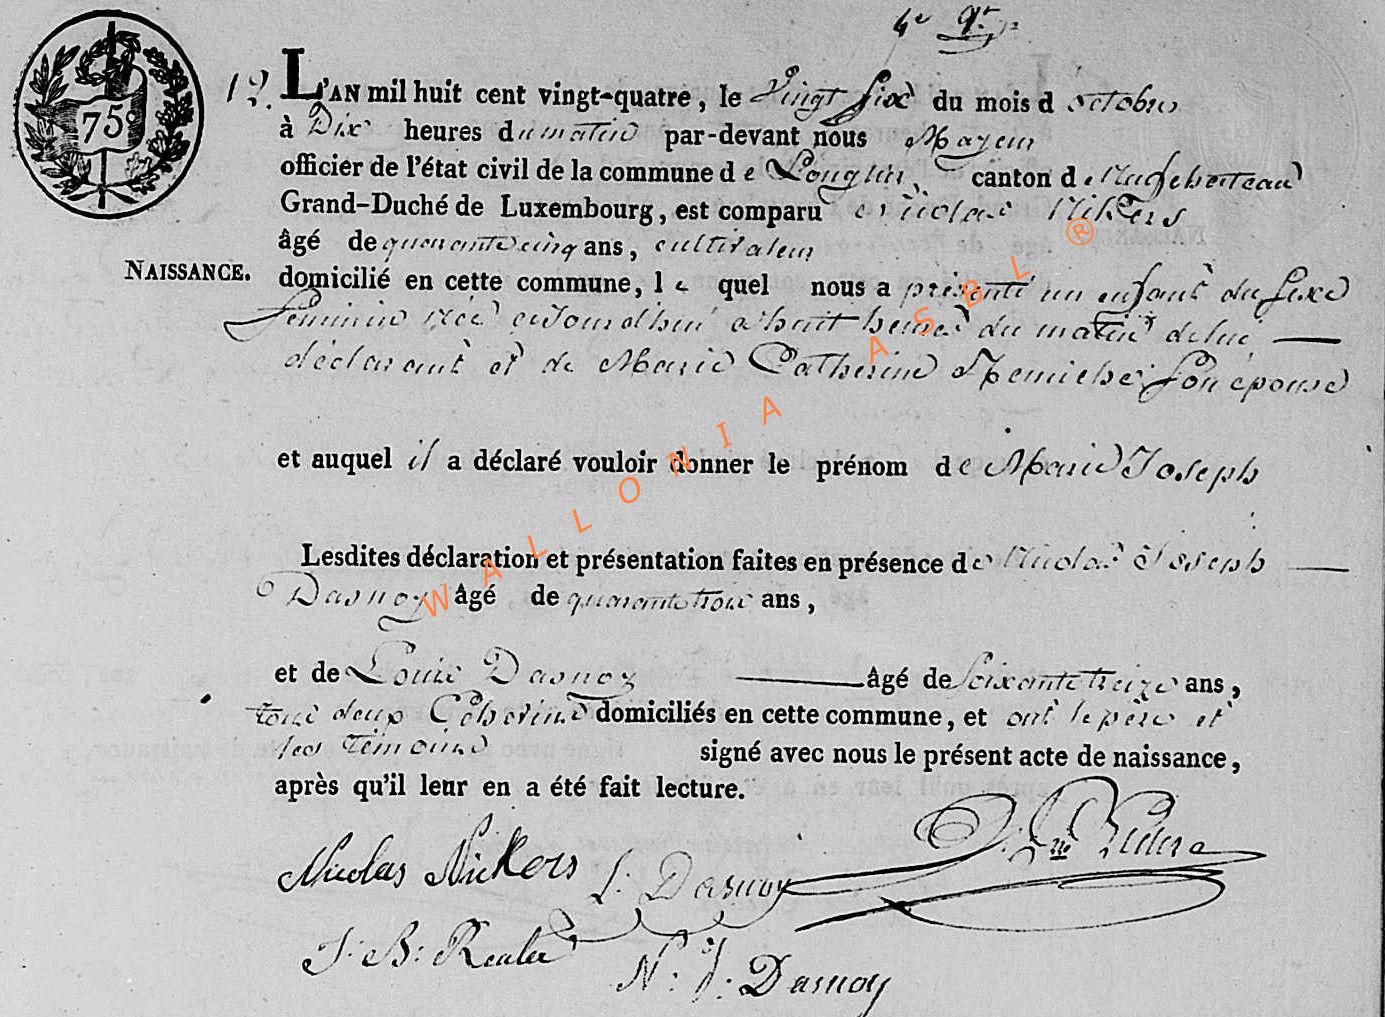 4e qr
75c
12.
L'AN mil huit cent vingt-quatre, le Vingt six du mois d octobre
à Dix heures du matin par-devant nous Mayeur
officier de l'état civil de la commune de Longlier, canton de Neufchateau
Grand-Duché de Luxembourg, est comparu Nicolas Nikers
âgé de quarante cinq ans, cultivateur
NAISSANCE.
domicilié en cette commune, le quel nous a présenté un enfant du sexe
feminin née aujourdhui a huit heures du matin de lui
déclarant et de Marie Catherine son épouse
et auquel il a déclaré vouloir donner le prénom de Marie Joseph
Lesdites déclaration et présentation faites en présence de Nicolas Joseph
Dasnoy âgé de quarante trois ans,
et de Louis Dasnoy âgé de soixante treize ans,
tous deux domiciliés en cette commune, et ont le père et
les témoins signé avec nous le présent acte de naissance,
après qu'il leur en a été fait lecture.
Nicolas Nickers L: Dasnoy
J: B: N: J: Dasnoy
WALLONIA ASBL ®